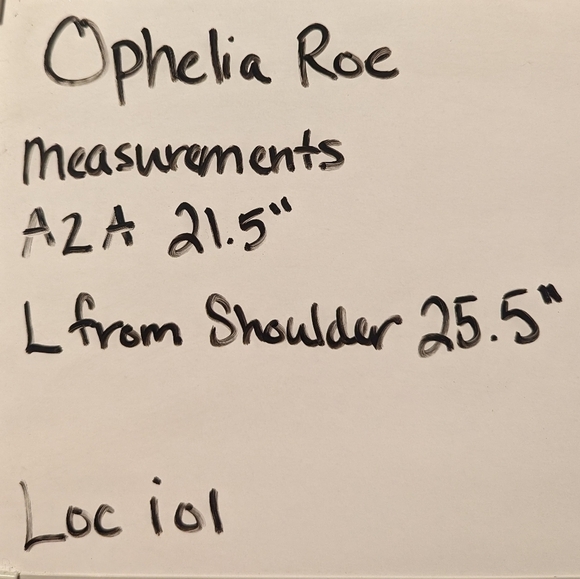 Ophelia Roe
Measurements
A2A 21.5"
L from Shoulder 25.5"
Loc i01